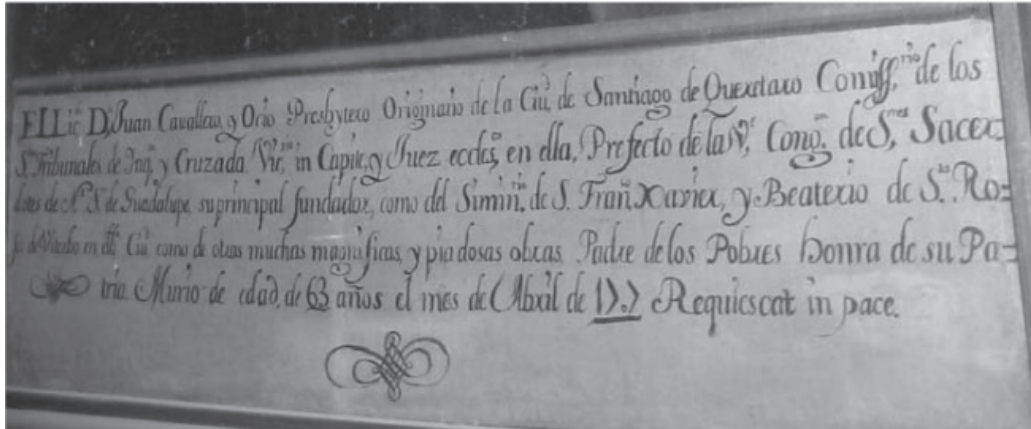 EL Lic D, Juan Cavallero, y Ocio Presbytero Originario de la Ciu, de Santiago de Queretaro Comiss,rio de los
S. Tribunales de Inq, y Cruzada, Vic,rio in Capite, y Juez eccles,co en ella, Prefecto de la V,e Cong,n de S,res Sacer=
dotes de N,a S. de Guadalupe, su principal fundador, como del Simin,rio de S. Fran Xavier, y Beaterio de S,ta Ro=
sa de Viterbo en dha Ciu, como de otras muchas magnificas, y piadosas obras, Padre de los Pobres honra de su Pa=
tria. Murio de edad, de 63 años el mes de Abril de Requiescat in pace.